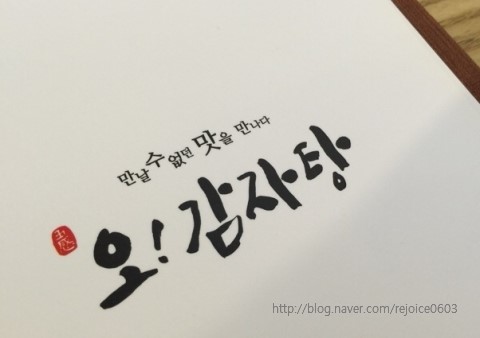 만날 수 없던 맛을 만나다
오! 감자탕
http://blog.naver.com/rejoice0603